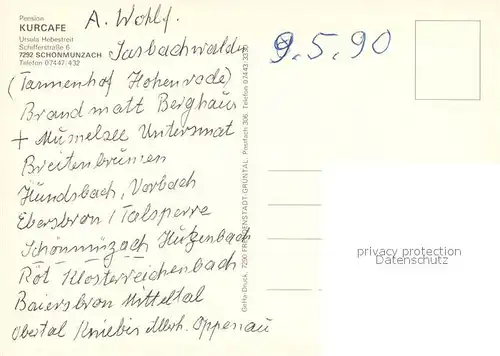 Pension
KURCAFE
Ursula Hebestreit
Schifferstraße 6
7292 SCHÖNMÜNZACH
Telefon 07447/432
A. Wohlf.
9.5.90
Sasbachwalden
(Tannenhof Hohenrode)
Brandmatt Berghaus
+ Mumelsee Untersmat
Breitenbrunnen
Hundsbach, Vorbach
Ebersbron / Talsperre
Schönmünzach Hutzenbach
Röt Klosterreichenbach
Baiersbron Mitteltal
Obertal Kniebis Oppenau
GeHa-Druck, 7290 FREUDENSTADT-GRÜNTAL, Postfach 306, Telefon 07443/3330
privacy protection
Datenschutz